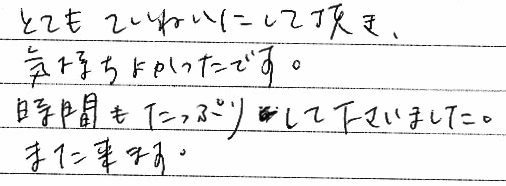 とても ていねいにして頂き、
気持ちよかったです。
時間もたっぷりして下さいました。
また来ます。